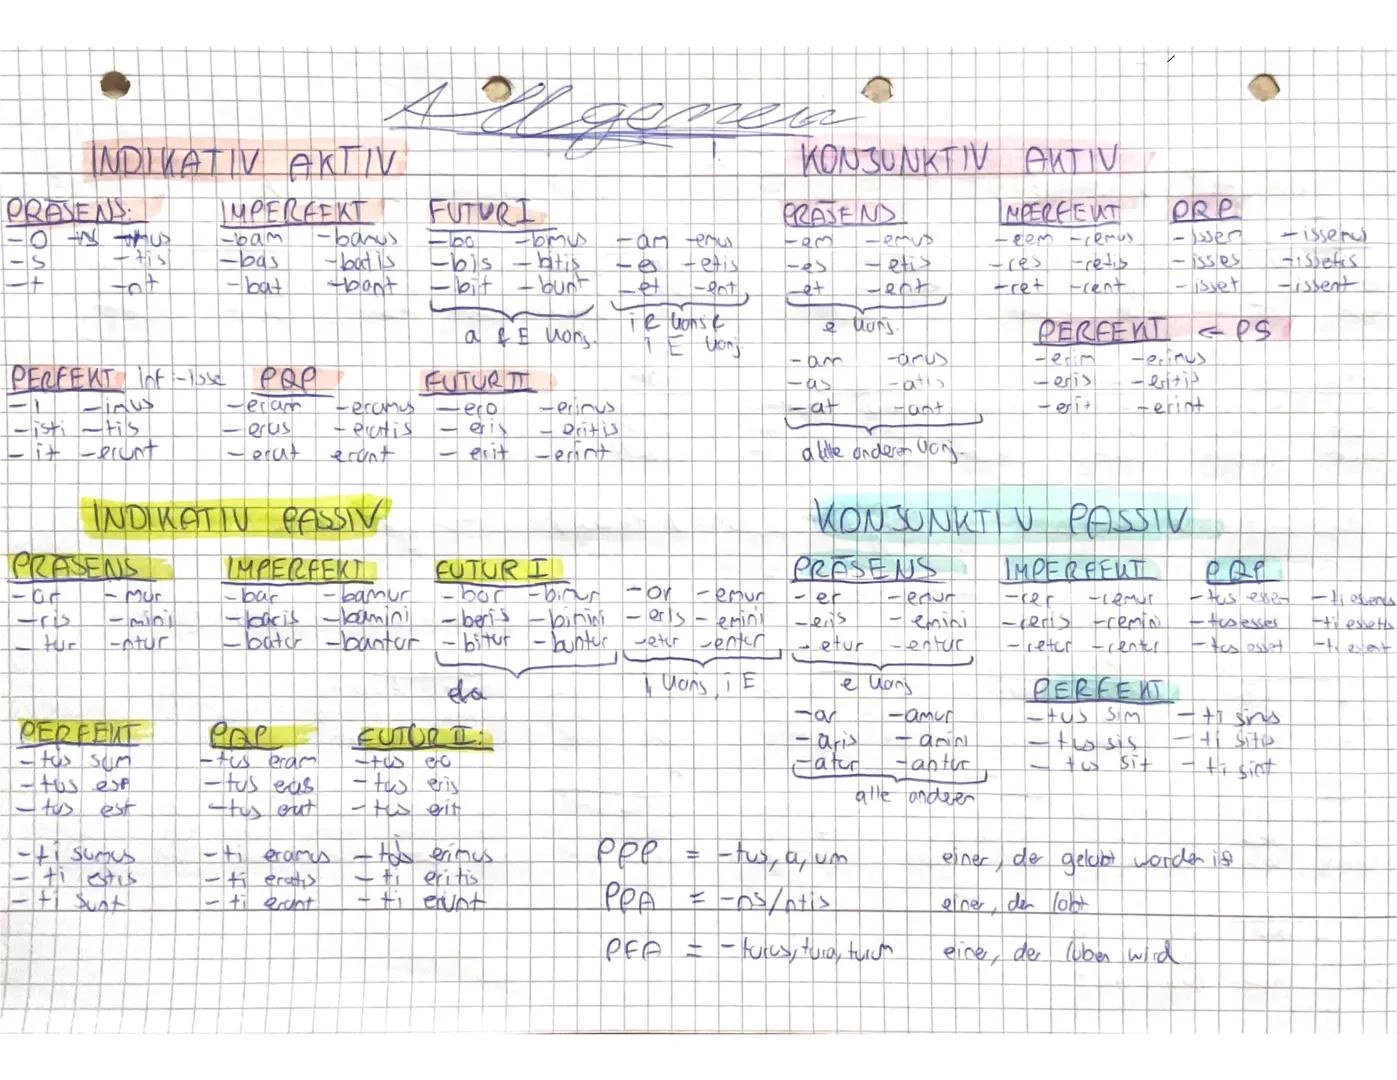 Allgemein
INDIKATIV AKTIV
PRÄSENS: IMPERFEKT FUTUR I
-O -mus -bam -bamus -bo -bimus -am -emus
-s -tis -bas -batis -bis -bitis -es -etis
-t -nt -bat -bant -bit -bunt -et -ent
a & E Konj. iE Konj.
PERFEKT Inf: -isse PQP FUTUR II
-i -imus -eram -eramus -ero -erimus
-isti -tis -eras -eratis -eris -eritis
-it -erunt -erat erant -erit -erint
KONJUNKTIV AKTIV
PRÄSENS IMPERFEKT PQP
-em -emus -rem -remus -issem -issemus
-es -etis -res -retis -isses -issetis
-et -ent -ret -rent -isset -issent
e Konj.
PERFEKT ← PS
-am -amus -erim -erimus
-as -atis -eris -eritis
-at -ant -erit -erint
alle anderen Konj.
INDIKATIV PASSIV
PRÄSENS IMPERFEKT FUTUR I
-or -mur -bar -bamur -bor -bimur -or -emur
-ris -mini -baris -bamini -beris -bimini -eris -emini
-tur -ntur -batur -bantur -bitur -buntur -etur -entur
Konj, iE
PERFEKT PQP FUTUR II:
-tus sum -tus eram -tus ero
-tus es -tus eras -tus eris
-tus est -tus erat -tus erit
-ti sumus -ti eramus erimus
-ti estis -ti eratis -ti eritis
-ti sunt -ti erant -ti erunt
KONJUNKTIV PASSIV
PRÄSENS IMPERFEKT PQP
-er -emur -rer -remur -tus essem -ti essemus
-eris -emini -reris -remini -tus esses -ti essetis
-etur -entur -retur -rentur -tus esset -ti essent
e Konj
PERFEKT
-ar -amur -tus sim -ti simus
-aris -amini -tus sis -ti sitis
-atur -antur -tus sit -ti sint
alle anderen
PPP = -tus, a, um einer, der gelobt worden ist
PPA = -ns/ntis einer, der lobt
PFA = -turus, tura, turum einer, der loben wird